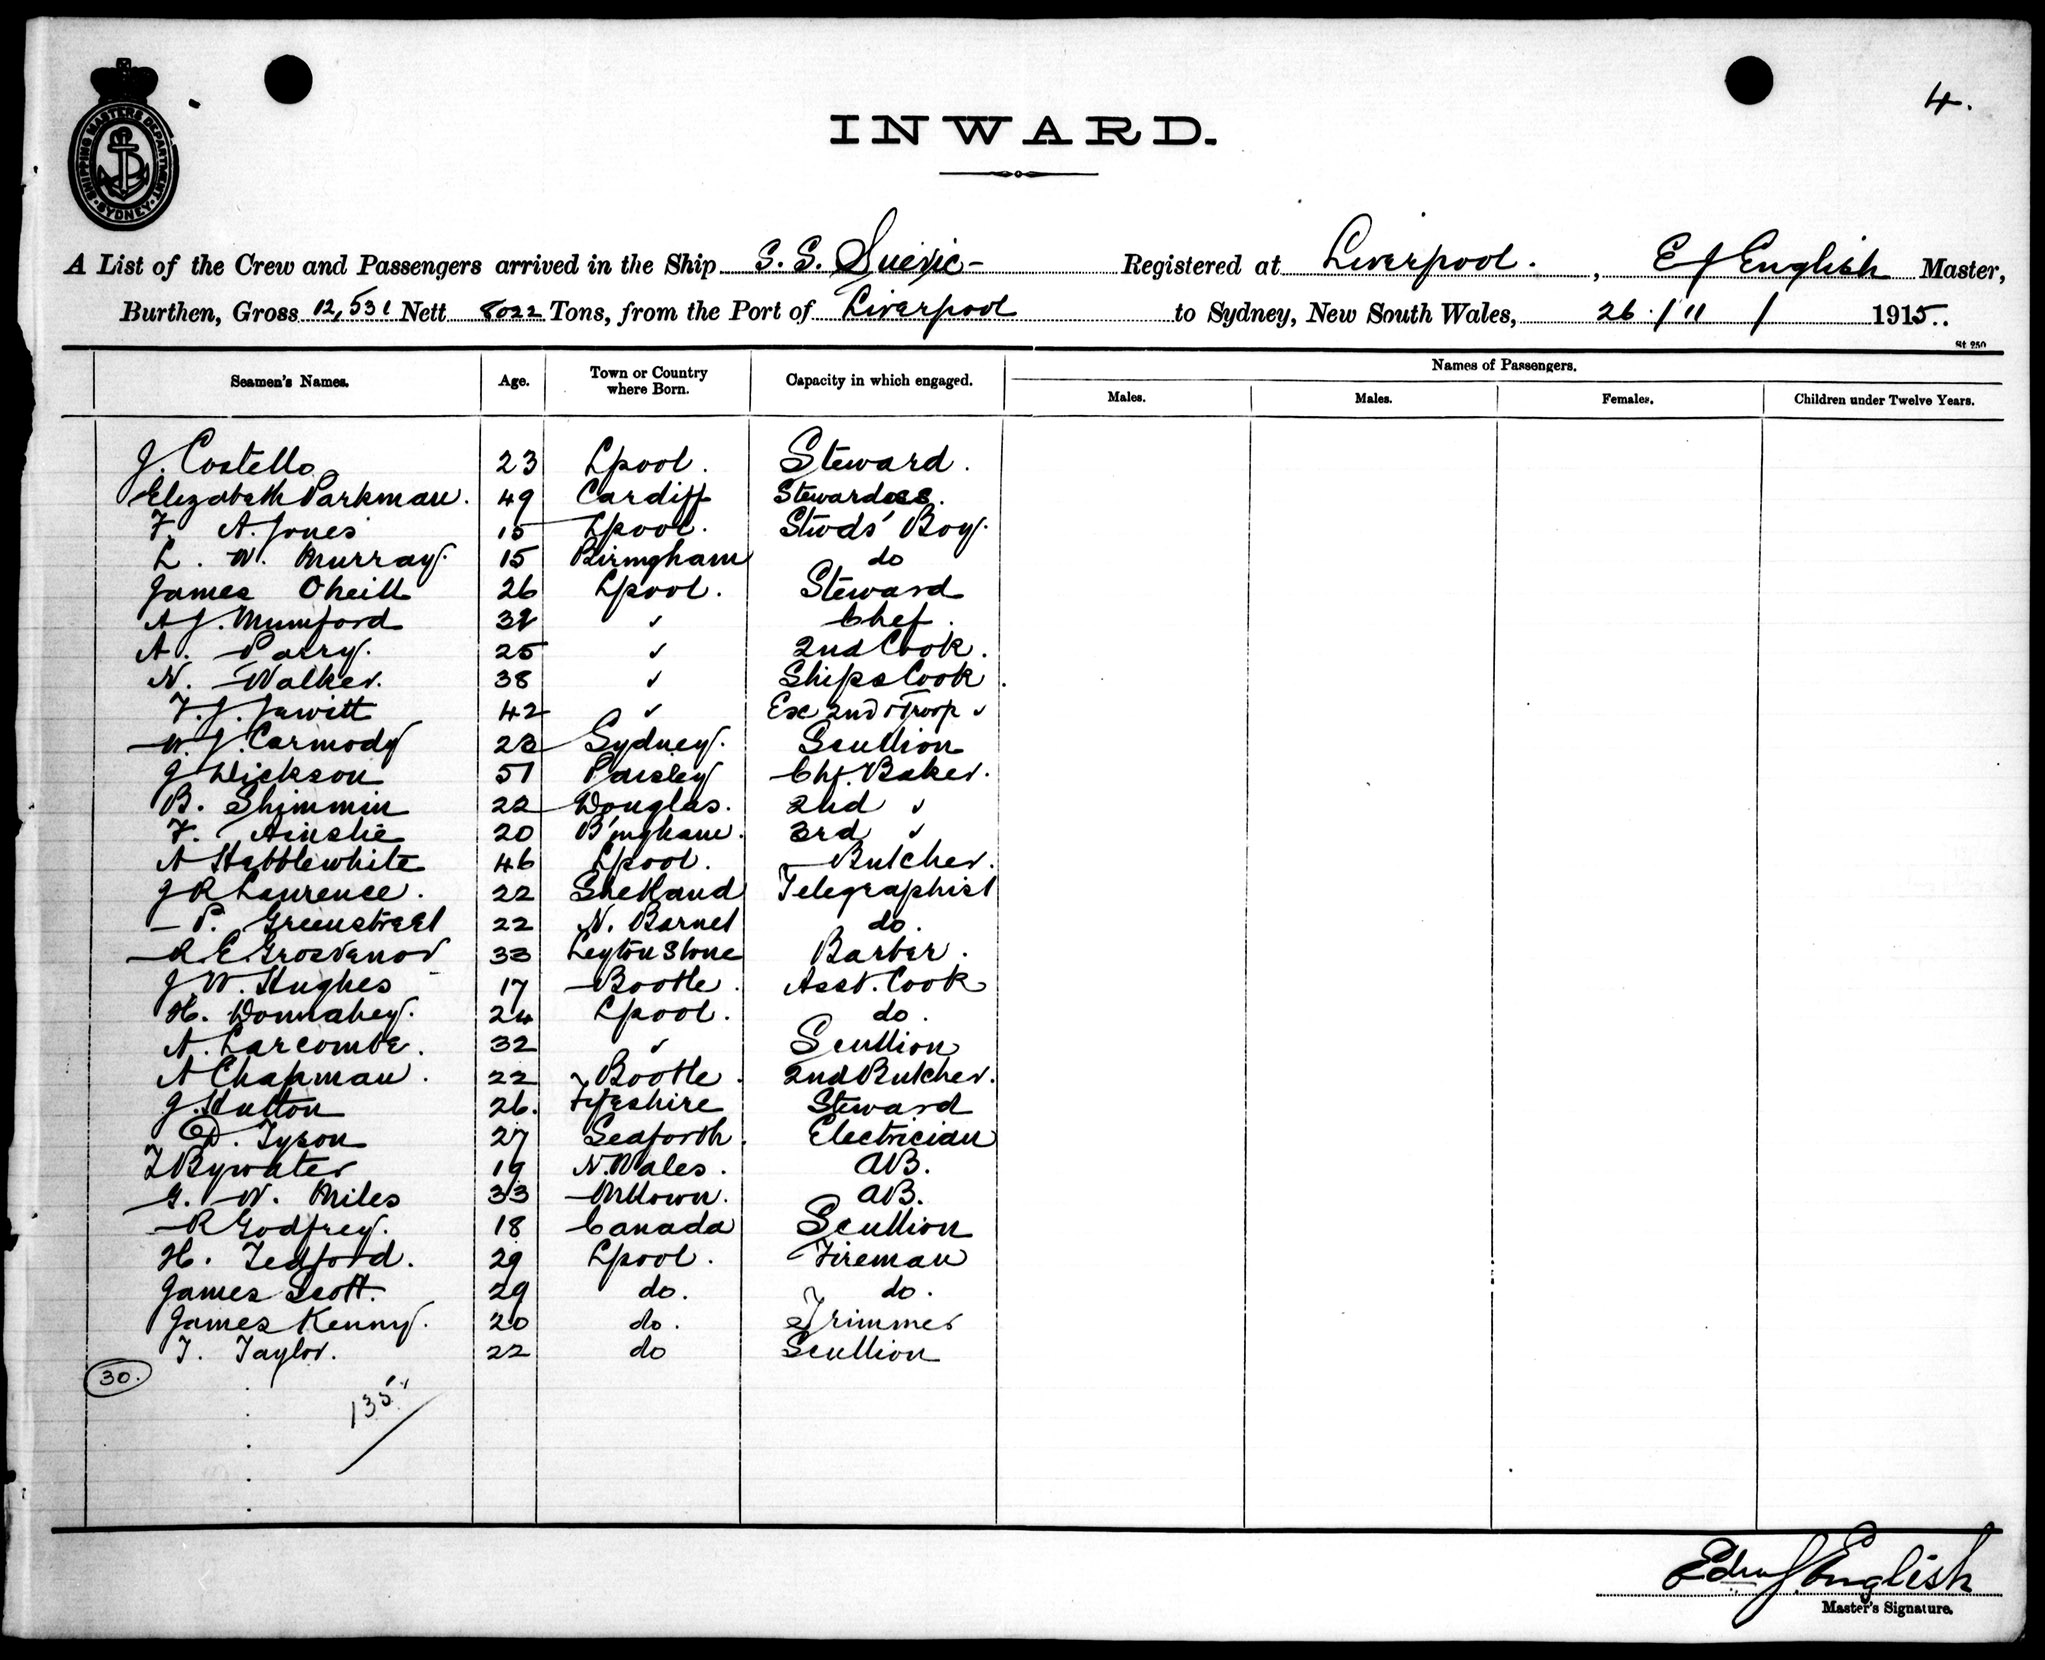 4.
SHIPPING MASTERS DEPARTMENT
SYDNEY
INWARD.
A List of the Crew and Passengers arrived in the Ship S. S. Suevic - Registered at Liverpool. , E J English Master,
Burthen, Gross 12,531 Nett 8022 Tons, from the Port of Liverpool to Sydney, New South Wales, 26 / 11 / 1915.
St 250
Seamen's Names. Age. Town or Country where Born. Capacity in which engaged. Names of Passengers.
Males. Males. Females. Children under Twelve Years.
J. Costello 23 Lpool. Steward.
Elizabeth Parkman. 49 Cardiff Stewardess.
F. A. Jones 15 Lpool. Stwds' Boy.
L. W. Murray. 15 Birmgham do
James Oneill 26 Lpool. Steward
A J. Mumford ✓ Chef.
A. Parry. 25 ✓ 2nd Cook.
N. Walker. 38 ✓ Ships Cook.
F. J. Jewitt 42 ✓ Ex 2nd Troop ✓
W. J. Carmody 23 Sydney. Scullion
J Dickson 51 Paisley Chf. Baker.
B. Shimmin 22 Douglas. 2nd ✓
F. Ainslie 20 B'mgham. 3rd ✓
A Hebblewhite 46 Lpool. Butcher.
J R Laurence. 22 Shetland Telegraphist
P. Greenstreet 22 N. Barnet do.
R. E. Grosvenor 33 Leytonstone Barber.
J W. Hughes 17 Bootle. Asst. Cook
H. Donnahey. 24 Lpool. do.
A. Larcombe. 32 ✓ Scullion
A Chapman. 22 Bootle. 2nd Butcher.
J. Hutton 26. Fifeshire Steward
D. Tyson 27 Seaforth. Electrician
T Bywater 19 N. Wales. AB.
G. W. Miles 33 AB.
R Godfrey. 18 Canada Scullion
H. Tedford. 29 Lpool. Fireman
James Scott. 29 do. do.
James Kenny. 20 do. Trimmer
T. Taylor. 22 do Scullion
30.
135
Edw J. English
Master's Signature.